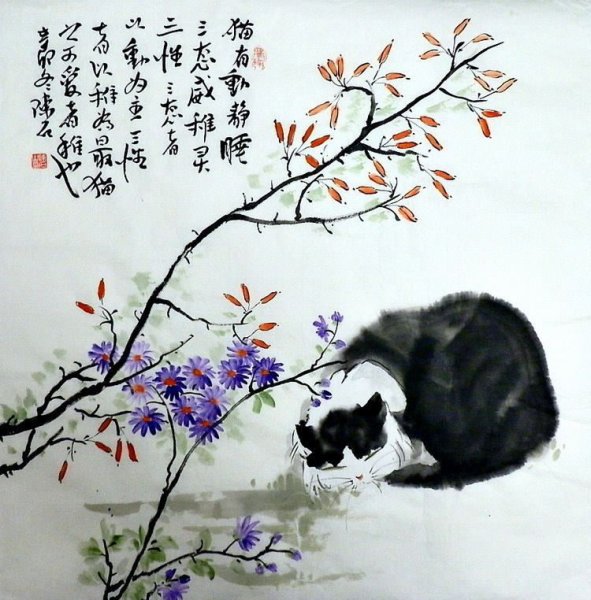 猫有動静睡
三态威稚灵
三性三态者
以動为主三性
者以稚为最猫
之可爱者稚也
辛卯冬陈石